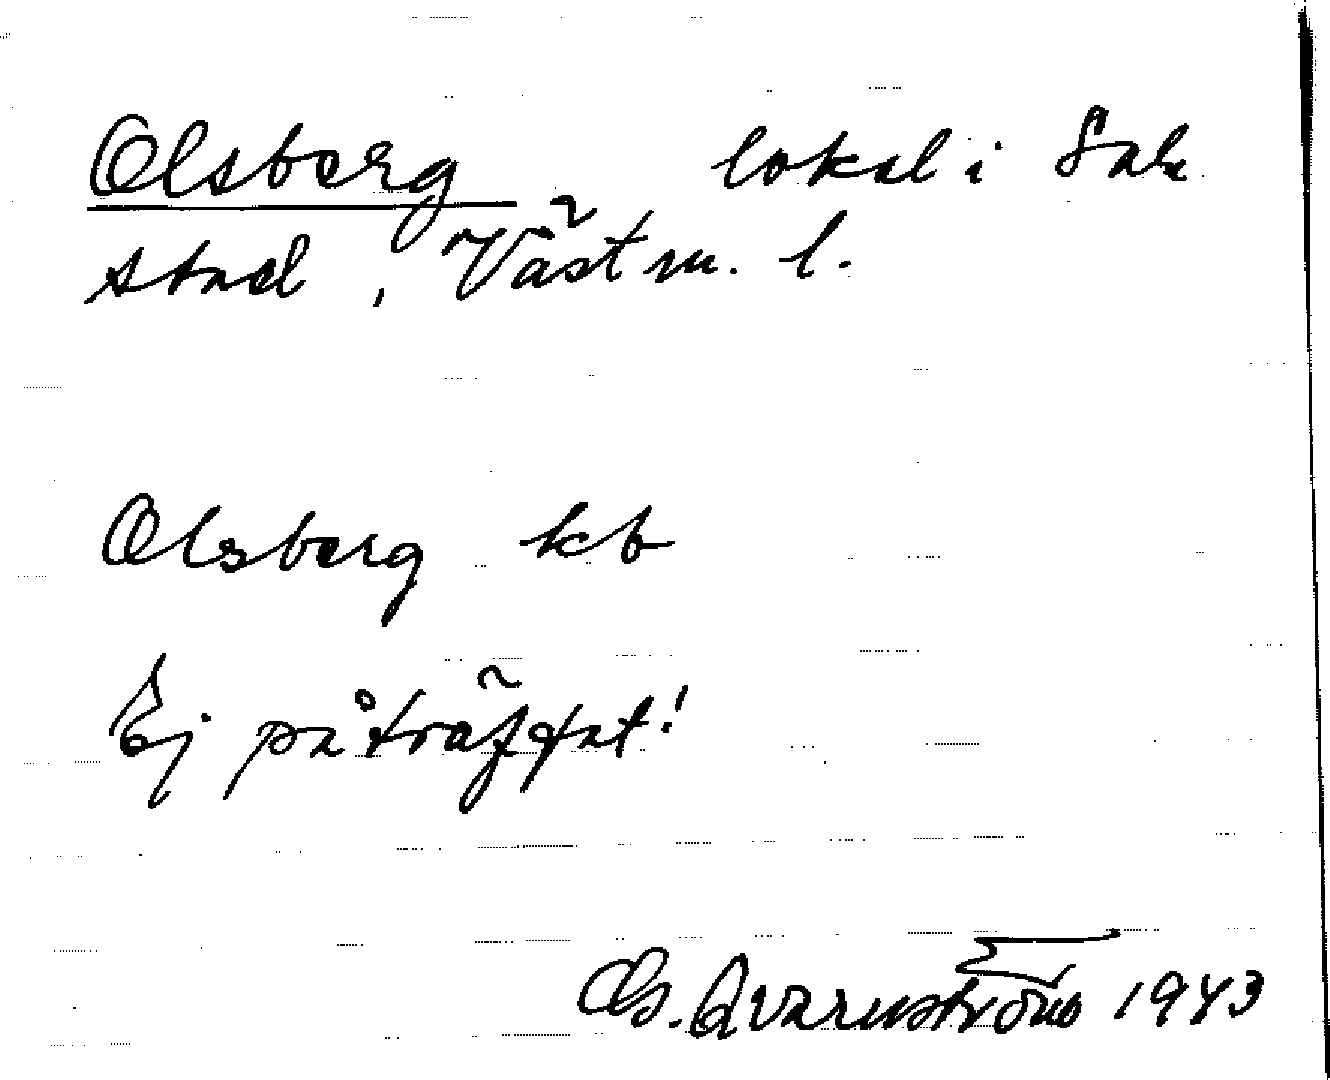 Olsberg lokal i Sala
stad, Västm. l.
Olsberg kb
Ej påträffat!
Gs. Qvarnström 1943